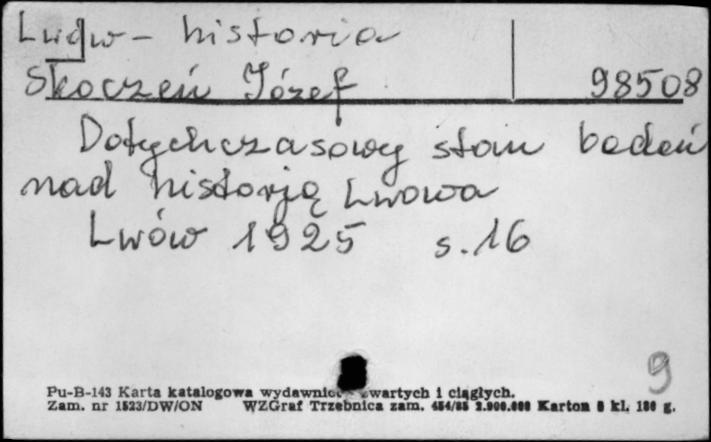 Lwów - historia
Skoczeń Józef 98508
Dotychczasowy stan badań
nad historją Lwowa
Lwów 1925 s. 16
9
Pu-B-143 Karta katalogowa wydawnictw zwartych i ciągłych.
Zam. nr 1523/DW/ON WZGraf Trzebnica zam. 454/85 2.000.000 Karton kl. 180 g.